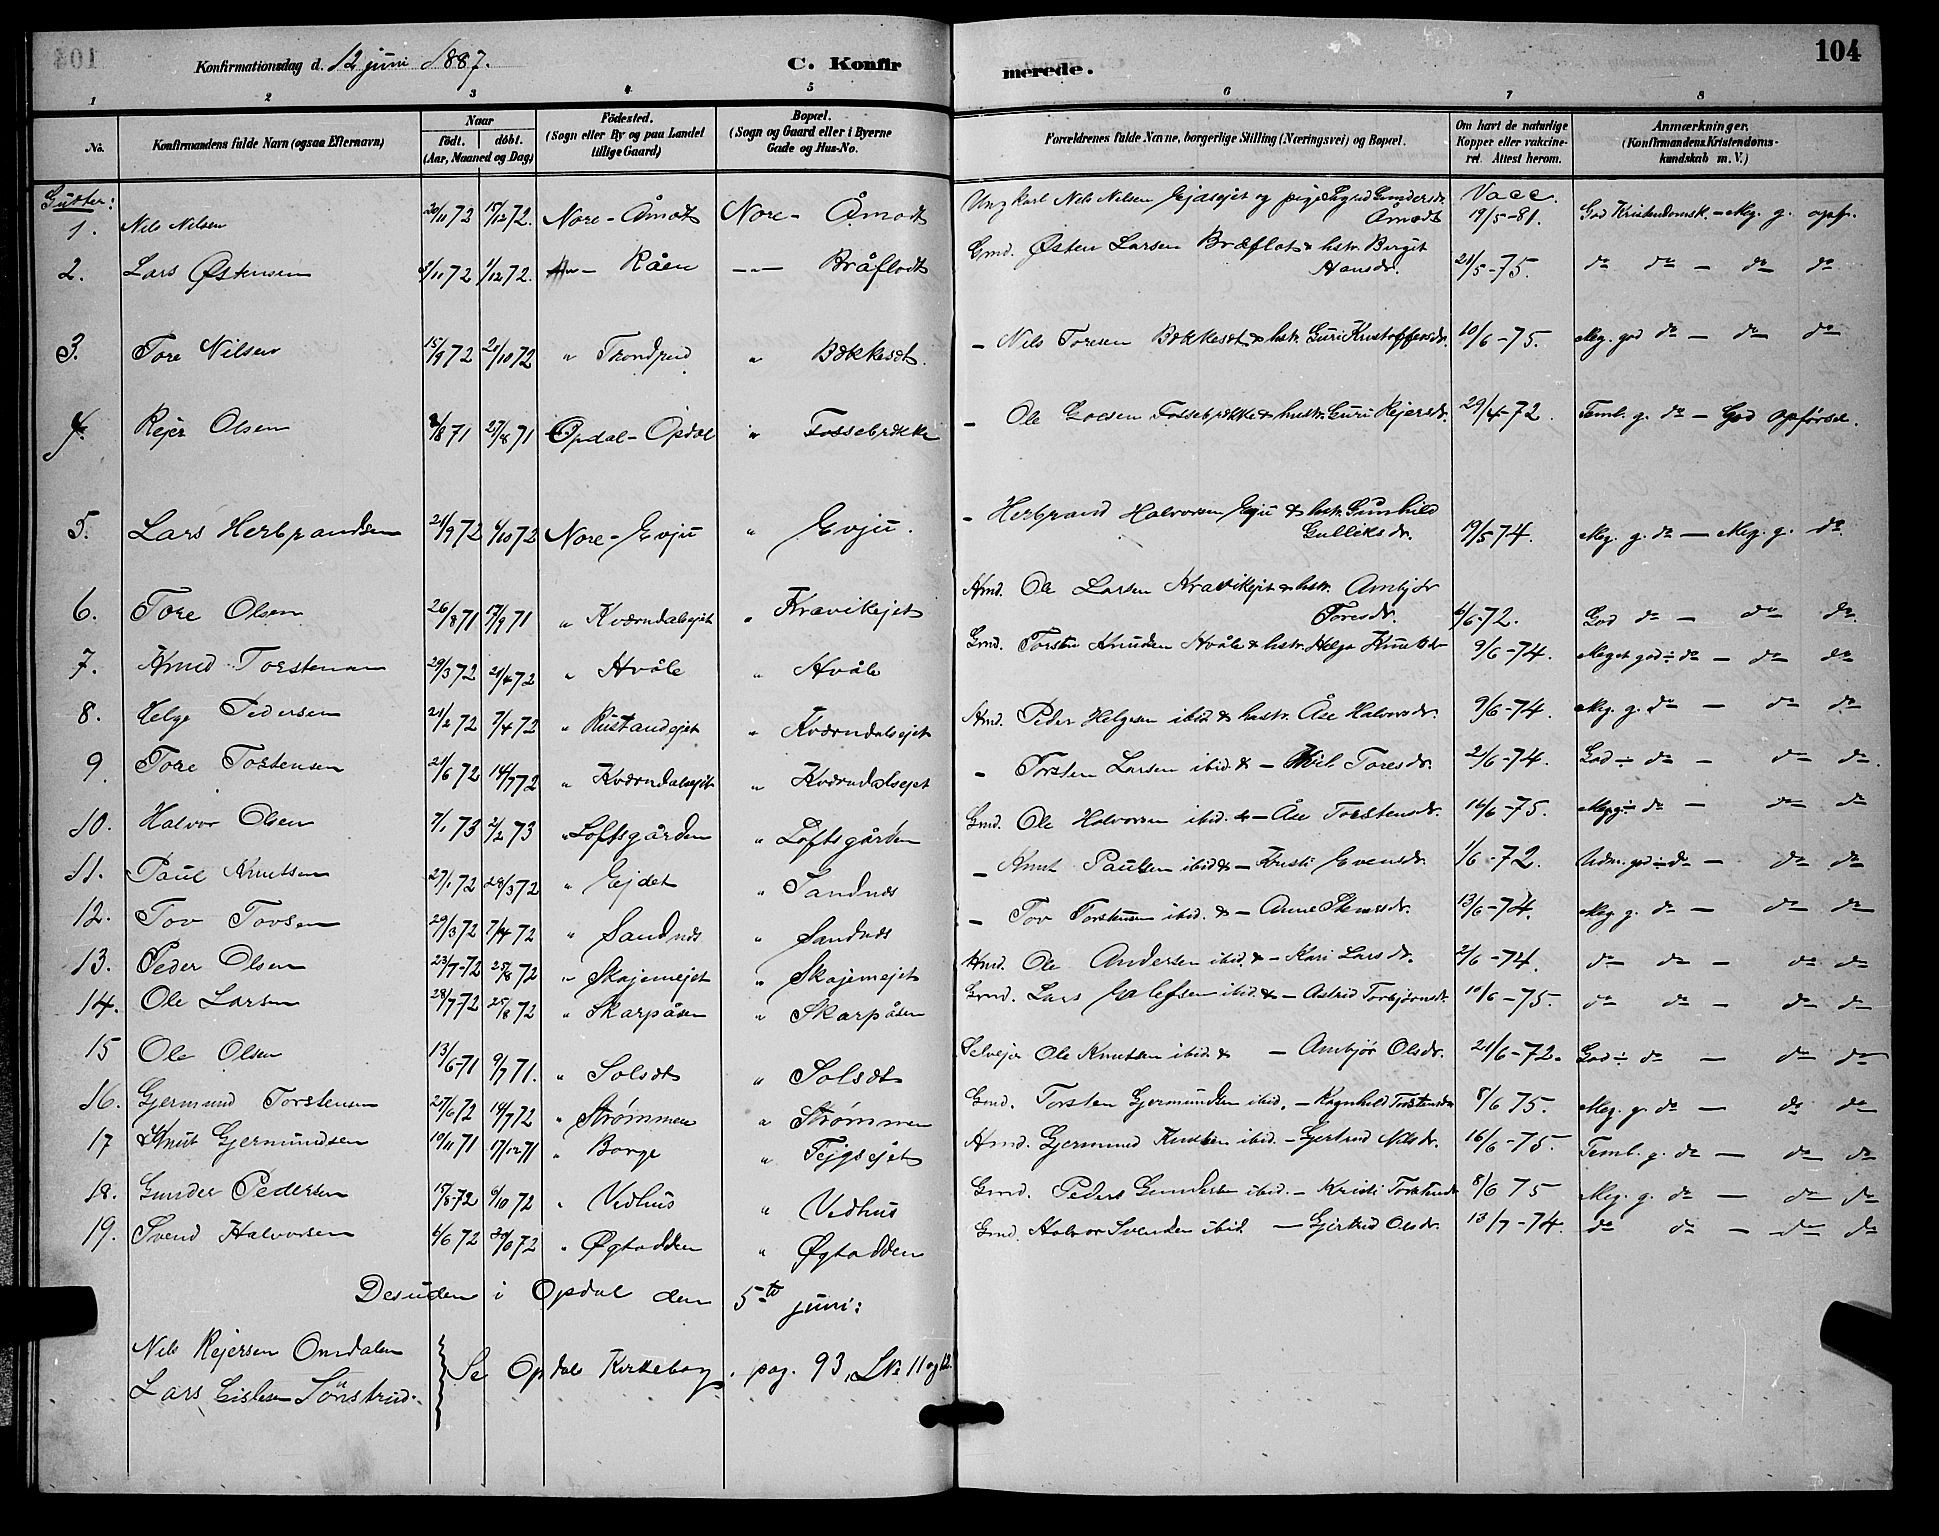 104
Konfirmationsdag d. 12 juni 1887.
C. Konfirmerede.
1 2 3 4 5 6 7 8
No.
Konfirmandens fulde Navn (ogsaa Efternavn)
Naar
födt. döbt.
(Aar, Maaned og Dag)
Födested.
(Sogn eller By og paa Landet
tillige Gaard)
Bopæl.
(Sogn og Gaard eller i Byerne
Gade og Hus-No.
Forældrenes fulde Navne, borgerlige Stilling (Næringsvei) og Bopæl.
Om havt de naturlige
Kopper eller vakcine-
ret. Attest herom.
Anmærkninger.
(Konfirmandens Kristendoms-
kundskab m. V.)
Gutter:
1. Nils Nilsen 20/11 72 15/12 72. Nore - Åmodt Nore - Åmodt Ungkarl Nils Nilsen og pige Gundersdr. Åmodt Vacc. 19/5-81. God Kristendomsk. - Meg. g. opf.
2. Lars Østensen 1/12 72. Råen -"- Bråflodt Gmd. Østen Larsen Bræflot & hstr. Berget Hansdr. 21/5-75. do do - do do
3. Tore Nilsen 15/9 72 2/10 72 " Trondrud " Bækkesæt. - Nils Toresen Bækkesæt & hstr. Guri Kristoffersdr. 10/6-75. Meg. god do - do do
4. Rejer Olsen 27/8 71 Opdal - Opdal " Fossebrække - Ole Fossebrække & hustr. Guri Rejersdr. 29/4-72. Teml. g. do - God opførsel.
5. Lars Herbrandsen 21/9 72 6/10 72 Nore - Evju " Evju. - Herbrand Halvorsen Evju & hstr. Gunhild Gulliksdr. 19/5 74. Meg. g. do - Meg. g. do.
6. Tore Olsen 26/8 71 17/9 71 " Kværndalsejet " Kravikejet Hmd. Ole Larsen Kravikejet & hstr. Ambjør Toresdr. 6/6-72. God do - do do.
7. Knud Torstensen 29/3 72 21/4 72 " Hvåle " Hvåle Gmd. Torsten Knudsen Hvåle & hstr. Helga Knutsdr. 9/6-74. Meget god ÷ do - do do
8. Helge Pedersen 21/2 72 7/4 72 " Rustandejet " Kværndalsejet Hmd. Peder Helgesen ibid. & hustr. Åse Halvorsdr. 9/6-74. Meg. g. do - do do
9. Tore Tostensen 21/6 72 14/7 72 " Kværndalsejet " Kværndalsejet - Torsten Larsen ibid. & - Toresdr. 21/6-74. God ÷ do - do do.
10. Halvor Olsen 7/1 73 2/2 73 " Loftsgården " Loftsgården Gmd. Ole Halvorsen ibid. & - Åse Torstensdr. 16/6-75. Meg g ÷ do - do do
11. Paul Knutsen 27/1 72 28/3 72 " Ejdet " Sandnes - Knut Paulsen ibid & - Kristi Evensdr. 1/6-72. Udm. god ÷ do - do do
12. Tov Tovsen 29/3 72 7/4 72 " Sandnes " Sandnes - Tov Torstensen ibid. & - Anne Stensdr. 13/6-74. Meg g. do - do do
13. Peder Olsen 23/7-72 25/8 72 " Skajemejet " Skajemejet Hmd. Ole Andersen ibid. & - Kari Larsdr. 21/6-74. do do - do do
14. Ole Larsen 28/7 72 25/8 72 " Skarpåsen " Skarpåsen Gmd. Lars ibid. & - Astrid Torbjørnsdr. 10/6-75. do do - do do
15 Ole Olsen 13/6-71 9/7 71. " Solsæt " Solsæt Selvejer Ole Knutsen ibid. & - Ambjør Olsdr. 21/6-72. God ÷ do - do do
16. Gjermund Torstensen 21/6 72 14/7 72 " Strømmen " Strømmen Gmd. Torsten Gjermundsen ibid. - Ragnhild Torstensdr. 8/6 75. Meg. g. do - do do
17 Knut Gjermundsen 19/11 71 17/12 71 " Borge " Tejgsejet Hmd. Gjermund Knutsen ibid. - Gjertrud Nilsdr. 16/6-75. Teml. g. do - do do
18. Gunder Pedersen 17/8-72 6/10 72 " Vidhus " Vidhus Gmd. Peder Gundersen ibid. - Kristi Torstensdr 8/6 75 Meg. g. do - do do
19. Svend Halvorsen 6/6 72 72 " Øgtadden " Øgtadden Gmd. Halvor Svendsen ibid. - Gjertrud Olsdr. 13/7-74. do do - do do
Desuden i Opdal den 5te juni:
Nils Rejersen Omdalen
Lars Gislesen Sønstrud.
Se Opdals Kirkebog, pag. 93, No 11 og 12.